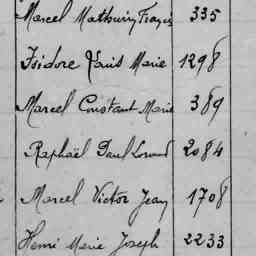 Marcel Mathurin Francis 335
Isidore Louis Marie 1298
Marcel Constant Marie 389
Raphaël Paul 2084
Marcel Victor Jean 1708
Henri Marie Joseph 2233